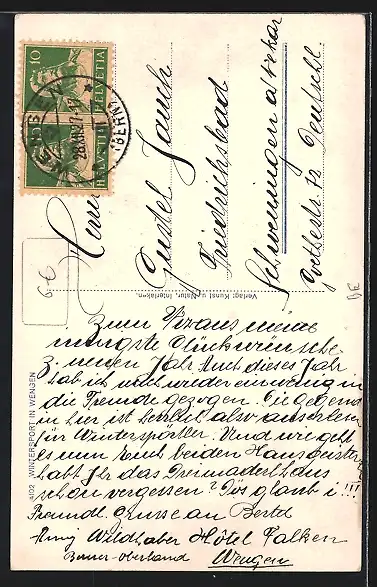 HELVETIA
10
HELVETIA
10
WENGEN
28.XII.27.-17
(BERN)
Gustel Jauch
Friedrichsbad
Schwenningen a/Neckar
Goethestr. 12 Deutschl.
Verlag: Kunst u. Natur, Interlaken.
4102 WINTERSPORT IN WENGEN
Zum Voraus meine
innigste Glückwünsche
z. neuen Jahr. Auch dieses Jahr
hab ich mich wieder ein wenig in
die Fremde gezogen. Die Gegend
ist hier herrlich also auserlesen
für Wintersportler. Und wie geht
es nun Euch beiden
habt Ihr das Dreimäderlhaus
schon vergessen? Dös glaub i !!!
Freundl. Grüsse an Bertel
Anny Wildhaber Hôtel Falken
Berner-Oberland Wengen